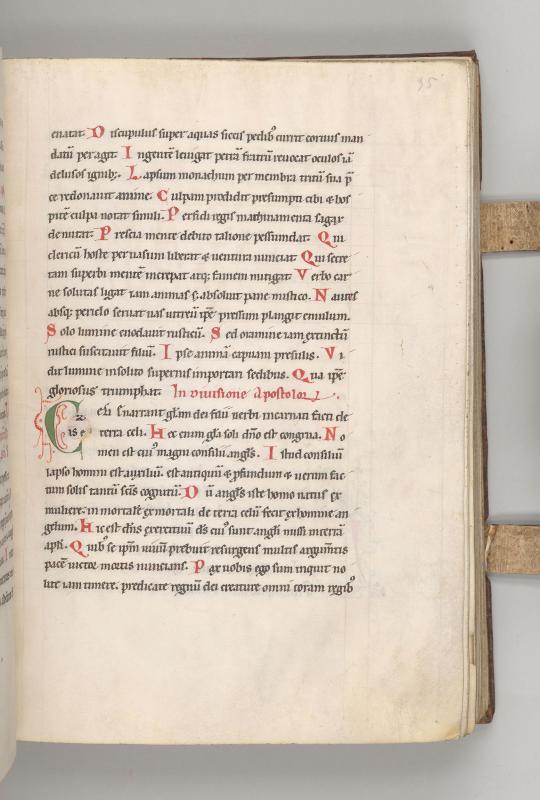 35
enatat. Discipulus super aquas siccis pedib; currit coruus man
datũ peragit. Ingentẽ leuigat petrã fratrũ reuocat oculos iã
delusos ignib;. Lapsum monachum per membra tritũ sua p̃
ce redonauit anime. Culpam prodidit presumpti cibi & hos
pitẽ culpa notat simili. Persidi regis machinamenta sagax
denutat. Prescia mente debito talione pessundat. Qui
clericũ hoste peruasum liberat & uentura nunciat. Qui secre
tam superbi mentẽ increpat atq; famem mitigat. Verbo car
ne solutas ligat iam animas & absoluit pane mistico. Nantes
absq; periclo seruat uas uitreũ ip̃e pressum plangit emulum.
Solo lumine enodauit rusticũ. Sed oramine iam extinctũ
rustici suscitauit filiũ. Ipse animã capuam presulis. Vi
dit lumine insolito supernis importari sedibus. Qua ip̃e
gloriosus triumphat. In diuisione apostolor
Celi enarrant gl̃am dei filii uerbi incarnati facti de
terra celi. Hec enim gl̃a soli dño est congrua. No
men est eius magni consilii angl̃s. Istud consiliũ
lapso homini est auxiliũ. est antiquũ & p̃fundum & uerum fac
tum solis tantũ sc̃is cognitũ. Dũ angl̃s iste homo natus ex
muliere. inmortalẽ ex mortali de terra celũ fecit ex homine an
gelum. Hic est dñs exercituũ d̃s cui; sunt angl̃i missi in terrã
apl̃i. Quib; se ip̃m uiuũ prebuit resurgens multis argum̃tis
pacẽ uictor mortis nuncians. Pax uobis ego sum inquit no
lite iam timere. predicate regnũ dei creature omni coram regib;